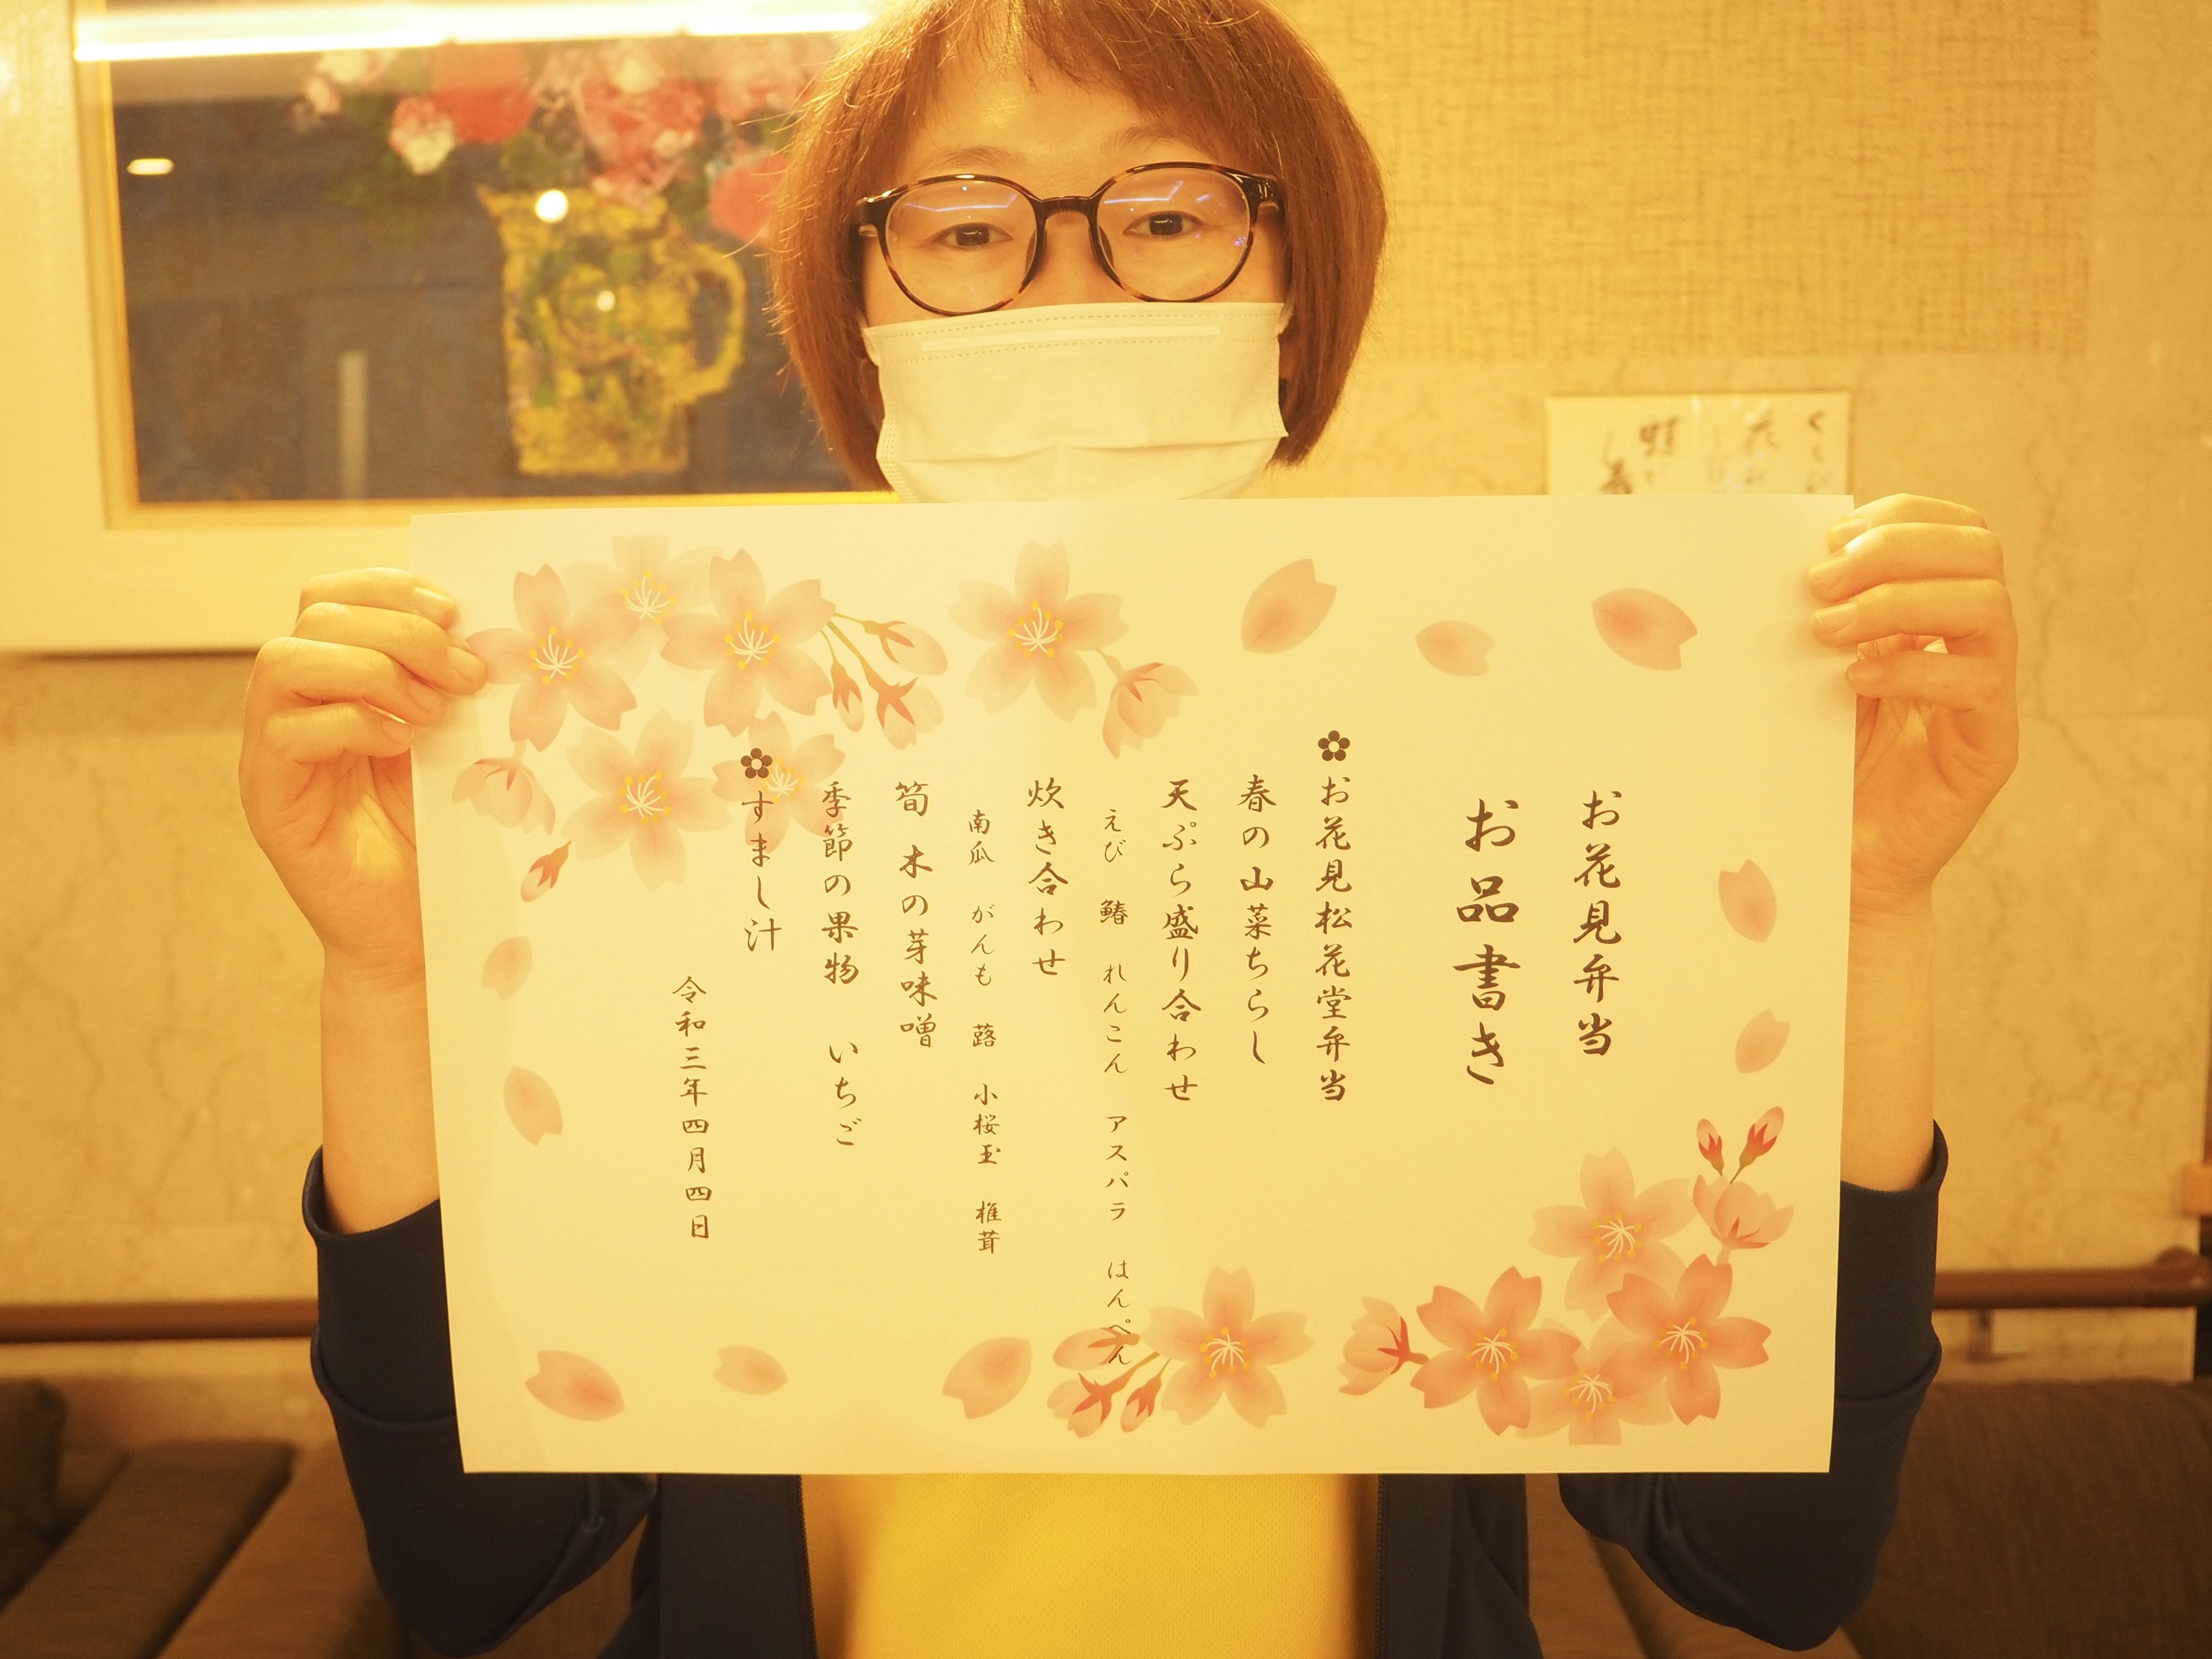 お花見弁当
お品書き
✿お花見松花堂弁当
春の山菜ちらし
天ぷら盛り合わせ
えび 鰆 れんこん アスパラ はんぺん
炊き合わせ
南瓜 がんも 蕗 小桜玉 椎茸
筍 木の芽味噌
季節の果物 いちご
✿すまし汁
令和三年四月四日